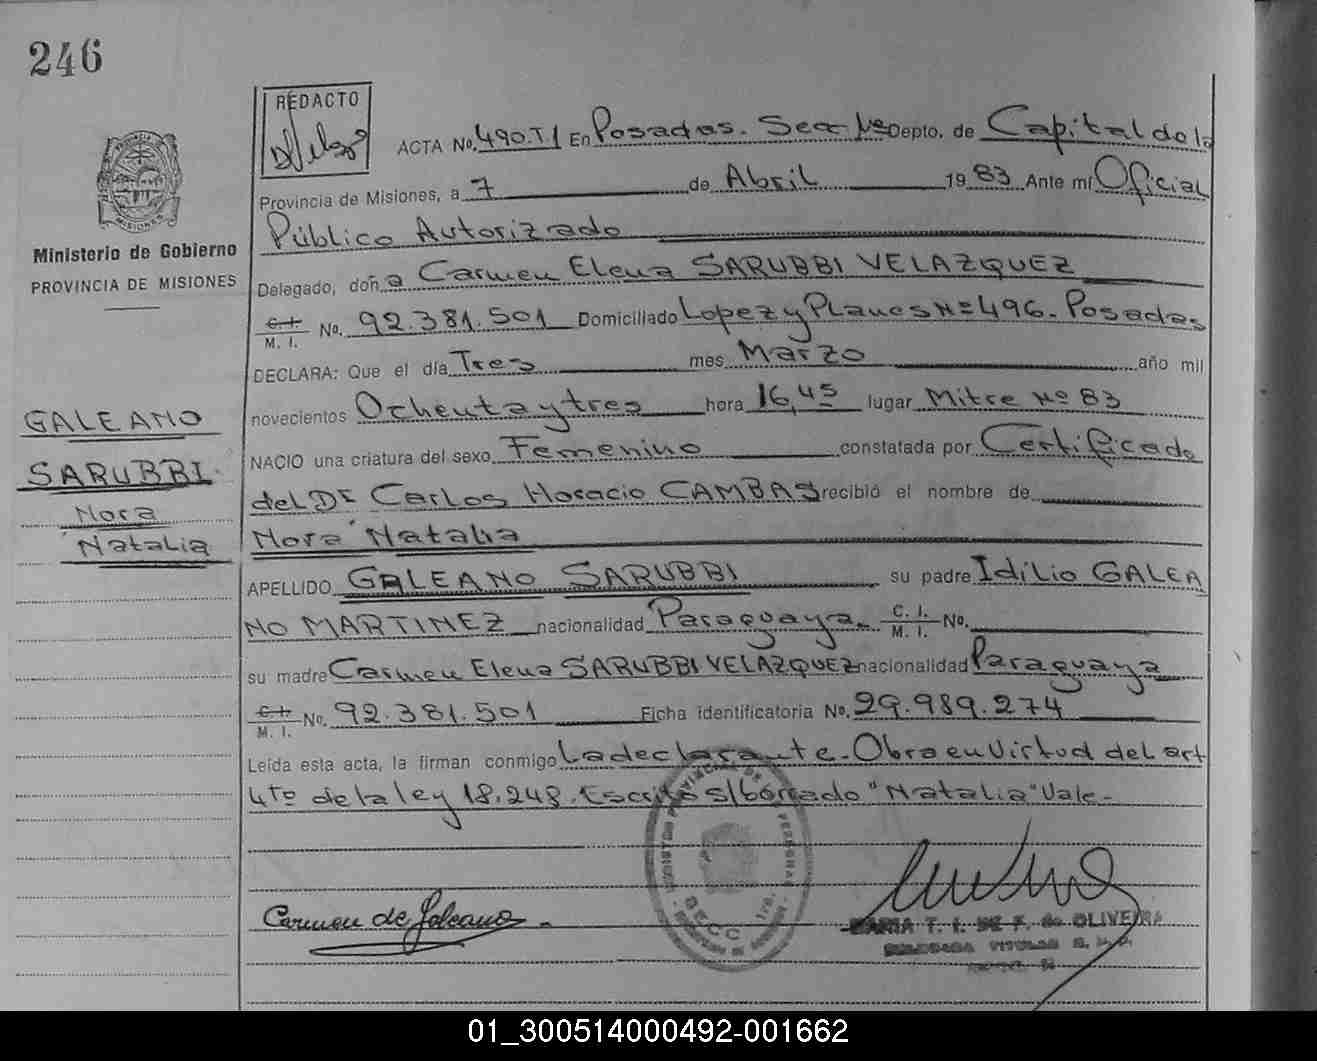 246
REDACTO
ACTA No. 490.T.1 En Posadas. Secc 1ª Depto. de Capital de la
Provincia de Misiones, a 7 de Abril 1983 Ante mí Oficial
Público Autorizado
Ministerio de Gobierno
PROVINCIA DE MISIONES
Delegado, doña Carmen Elena SARUBBI VELAZQUEZ
C. I. M. I. No. 92.381.501 Domiciliado Lopez y Planes Nº 496. Posadas
DECLARA: Que el día Tres mes Marzo año mil
novecientos Ochenta y tres hora 16,45 lugar Mitre Nº 83
GALEANO
SARUBBI
Nora
Natalia
NACIO una criatura del sexo Femenino constatada por Certificado
del Dr Carlos Horacio CAMBAS recibió el nombre de
Nora Natalia
APELLIDO GALEANO SARUBBI su padre Idilio GALEA
NO MARTINEZ nacionalidad Paraguaya C. I. M. I. No.
su madre Carmen Elena SARUBBI VELAZQUEZ nacionalidad Paraguaya
C. I. M. I. No. 92.381.501 Ficha identificatoria No. 29.989.274
Leída esta acta, la firman conmigo La declarante. Obra en Virtud del art
4to de la ley 18.248. Escrito s/borrado "Natalia" Vale-
Carmen de Galeano
MARIA T. I. DE F. de OLIVEIRA
01_300514000492-001662